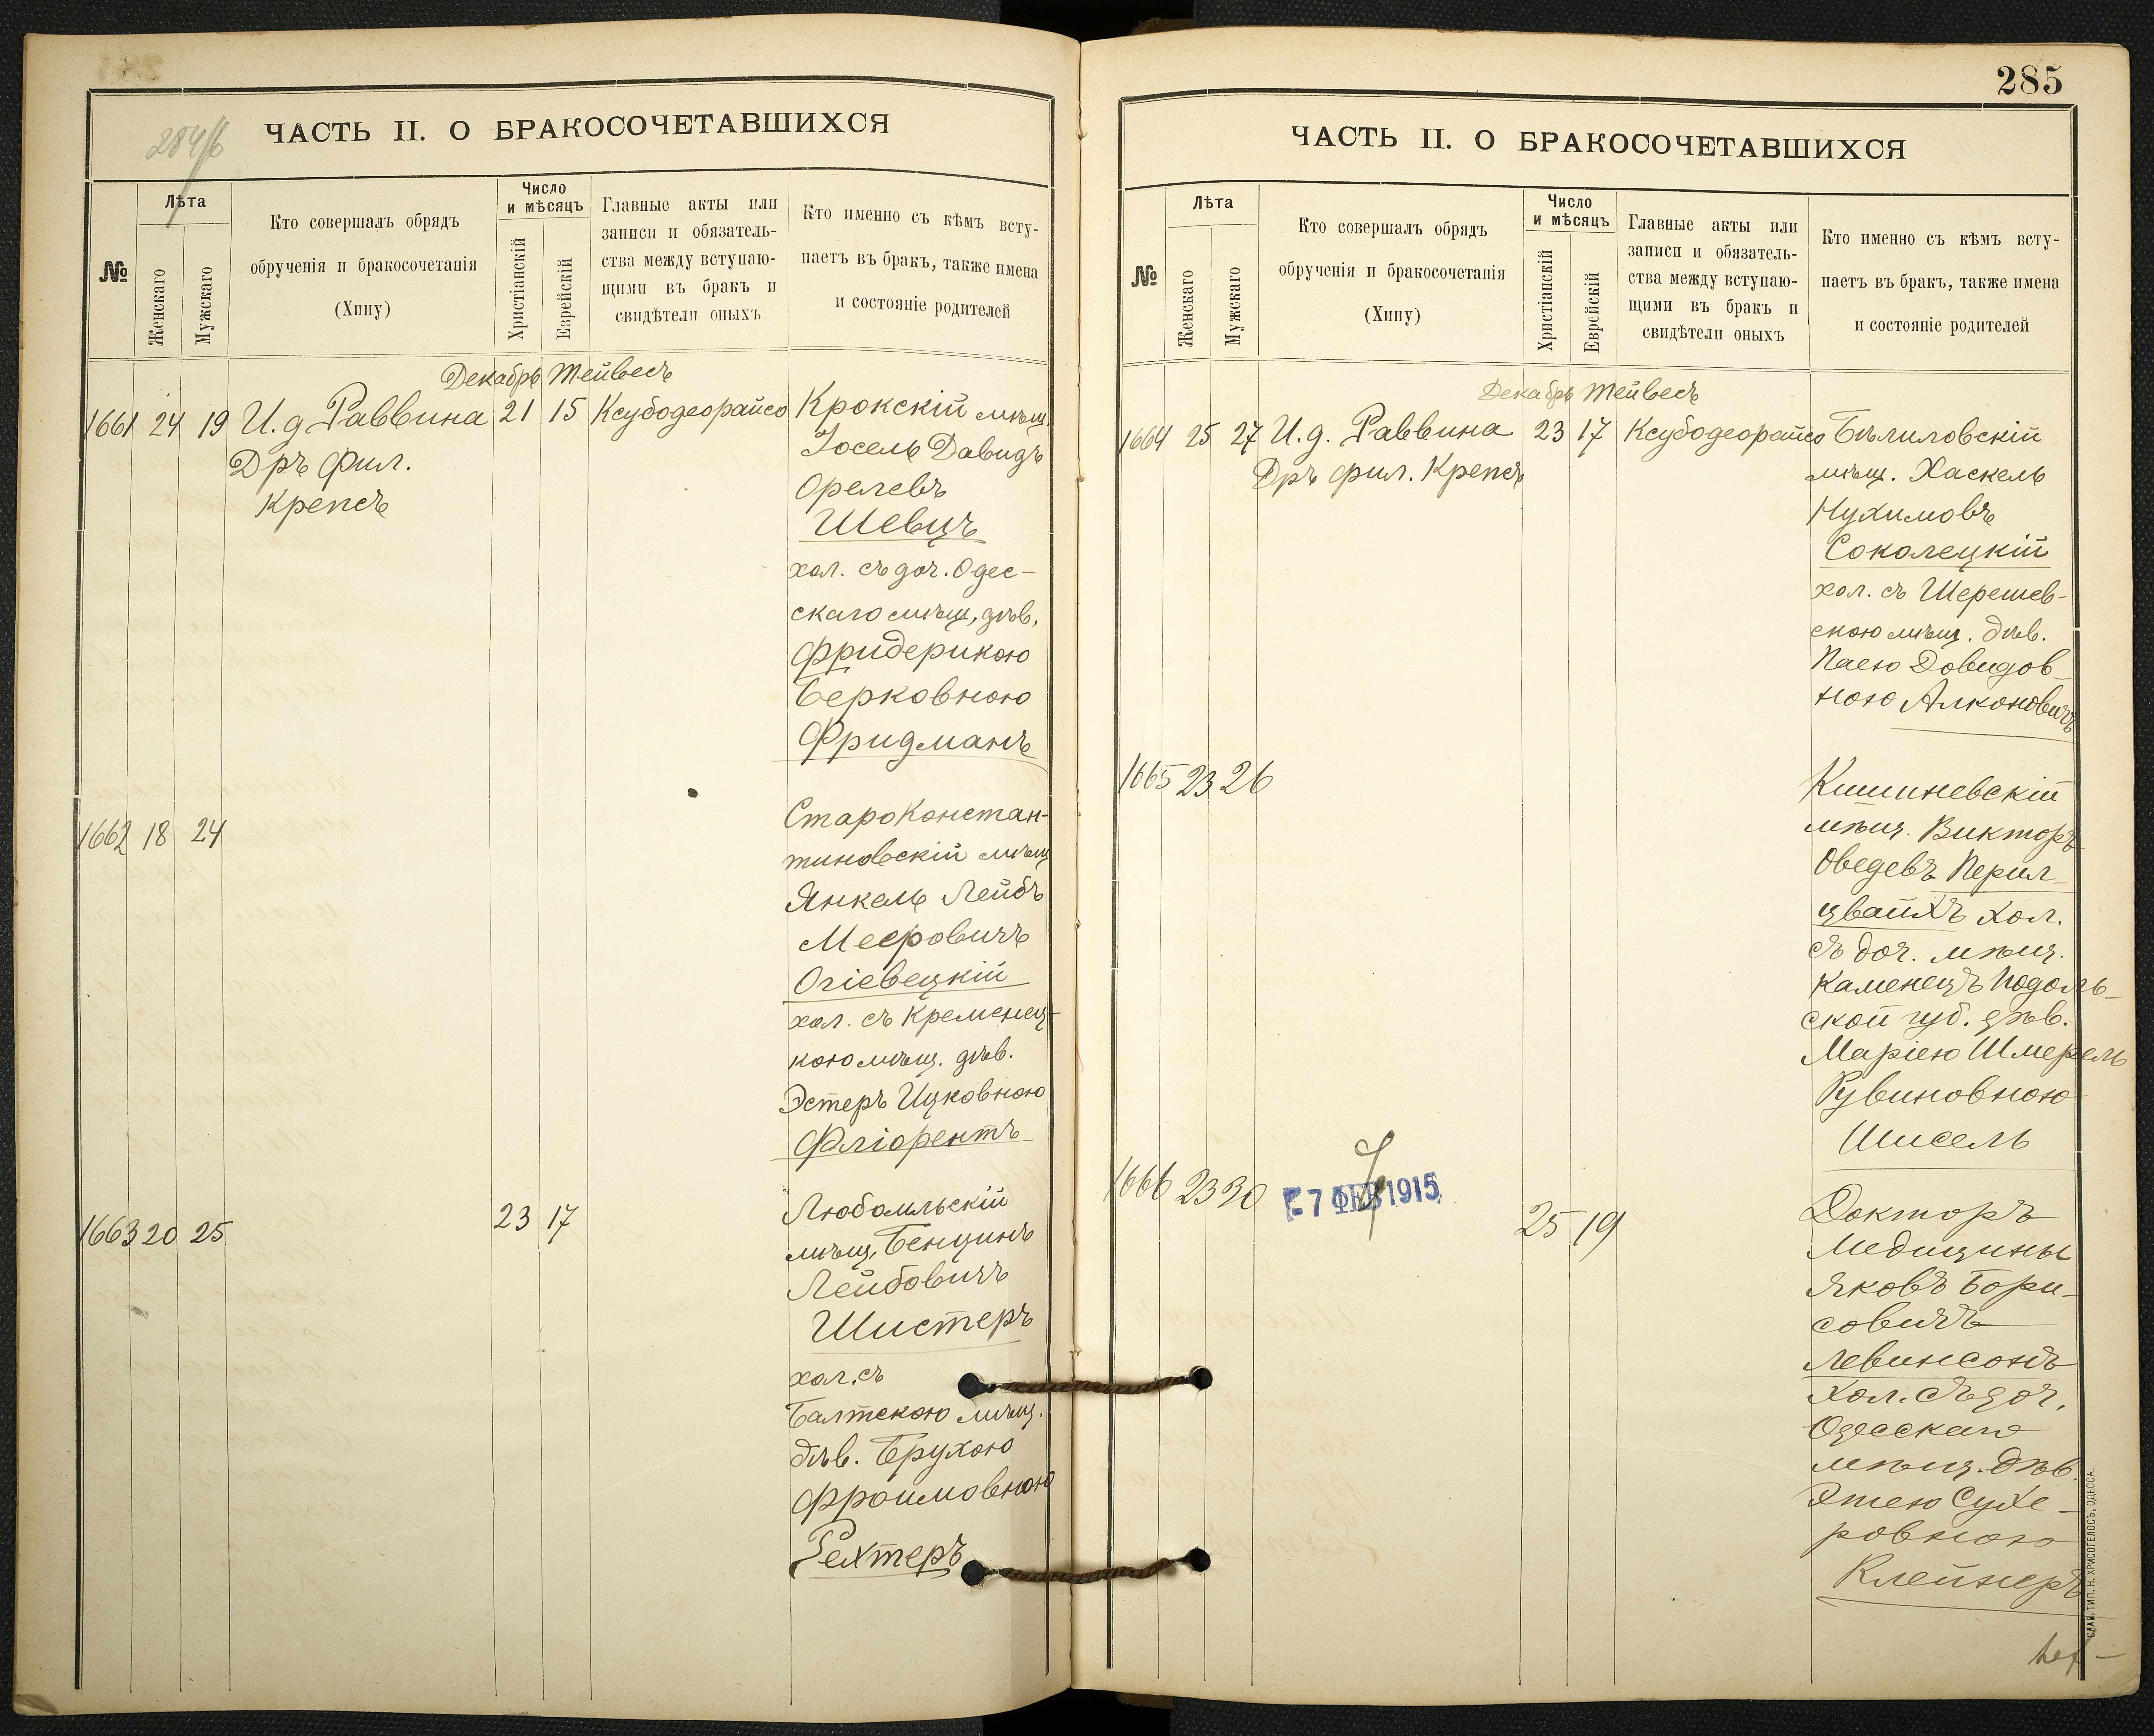 284/б
ЧАСТЬ II. О БРАКОСОЧЕТАВШИХСЯ
№
Лѣта
Женскаго
Мужскаго
Кто совершалъ обрядъ
обрученія и бракосочетанія
(Хипу)
Число
и мѣсяцъ
Христіанскій
Еврейскій
Главные акты или
записи и обязатель-
ства между вступаю-
щими въ бракъ и
свидѣтели оныхъ
Кто именно съ кѣмъ всту-
паетъ въ бракъ, также имена
и состояніе родителей
Декабрь Тейвесъ
1661 24 19 И. д Раввина 21 15 Ксубодеорайсо Крокскій мѣщ.
Дръ Фил.
Крепсъ
Іосель Давидъ
Орелевъ
Шевцъ
хол. съ доч. Одес-
скаго мѣщ, дѣв,
Фридерикою
Берковною
Фридманъ
1662 18 24
Староконстан-
тиновскій мѣщ
Янкель Лейбъ
Мееровичъ
Огіевецкій
хол. съ Кременец-
кою мѣщ. дѣв.
Эстеръ Ицковною
Фліорентъ
1663 20 25 23 17
Любомльскій
мѣщ, Бенціонъ
Лейбовичъ
Шистеръ
хол. съ
Балтскою мѣщ.
дѣв. Брухою
Фроимовною
Рехтеръ
285
ЧАСТЬ II. О БРАКОСОЧЕТАВШИХСЯ
№
Лѣта
Женскаго
Мужскаго
Кто совершалъ обрядъ
обрученія и бракосочетанія
(Хипу)
Число
и мѣсяцъ
Христіанскій
Еврейскій
Главные акты или
записи и обязатель-
ства между вступаю-
щими въ бракъ и
свидѣтели оныхъ
Кто именно съ кѣмъ всту-
паетъ въ бракъ, также имена
и состояніе родителей
Декабрь Тейвесъ
1664 25 27 И. д. Раввина 23 17 Ксубодеорайсо Бѣлиловскій
Дръ фил. Крепсъ
мѣщ. Хаскель
Нухимовъ
Соколецкій
хол. съ Шерешев-
скою мѣщ. дѣв.
Паею Довидов-
ною Алконовичъ
1665 23 26
Кишиневскій
мѣщ. Викторъ
Оведевъ Перил-
цвайхъ хол.
съ доч. мѣщ.
Каменецъ Подоль-
ской губ. дѣв.
Маріею Шмерель
Рувиновною
Шисель
1666 23 30 25 19
- 7 ФЕВ 1915
Докторъ
Медицины
Яковъ Бори-
совичъ
Левинсонъ
хол. съ доч.
Одесскаго
мѣщ. дѣв.
Сухе-
ровною
Клейнеръ
СЛАВ. ТИП. Н. ХРИСОГЕЛОСЪ, ОДЕССА.